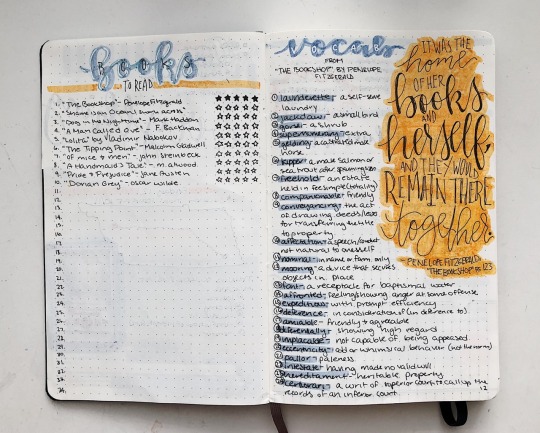 books
BOOKS
TO READ
1. "The Bookshop" - Penelope Fitzgerald
2. "Shame is an Ocean I swim across"
3. "Dog in the Nighttime" - Mark Haddon
4. "A Man Called Ove" - F. Backman
5. "Lolita" by Vladimir Nabokov
6. "The Tipping Point" - Malcolm Gladwell
7. "Of mice & men" - john steinbeck
8. "A Handmaid's Tale" - m. atwood
9. "Pride & Prejudice" - Jane Austen
10. "Dorian Grey" - oscar wilde
11.
12.
13.
14.
15.
16.
17.
18.
19.
20.
21.
22.
23.
24.
25.
26.
27.
28.
vocab
FROM
"THE BOOKSHOP" BY PENELOPE
FITZGERALD
launderette - a self-serve
laundry
jackdaw - a small bird
gorse - a shrub
supernumerary - extra
gelding - a castrated male
horse
kipper - a male salmon or
sea trout after spawning
freehold - an estate
held in fee simple
companionable - friendly
conveyancing - the act
of drawing deeds/leases
for transferring the title
to property
affectation - a speech/conduct
not natural to oneself
nominal - in name or form only
mooring - a device that secures
objects in place
font - a receptacle for baptismal water
affronted - feeling/showing anger at some offense
expeditious - with prompt efficiency
deference - in consideration of (in deference to)
amiable - friendly & agreeable
deferentially - showing high regard
implacable - not capable of being appeased
eccentricity - odd or whimsical behavior (not the norm)
pallor - paleness
intestate - having made no valid will
hereditament - heritable property
certiorari - a writ of superior court to call up the
records of an inferior court
12
IT WAS THE
home
OF HER
books
AND
herself,
AND THEY WOULD
REMAIN THERE
together.
- PENELOPE FITZGERALD
"THE BOOKSHOP" PG 123